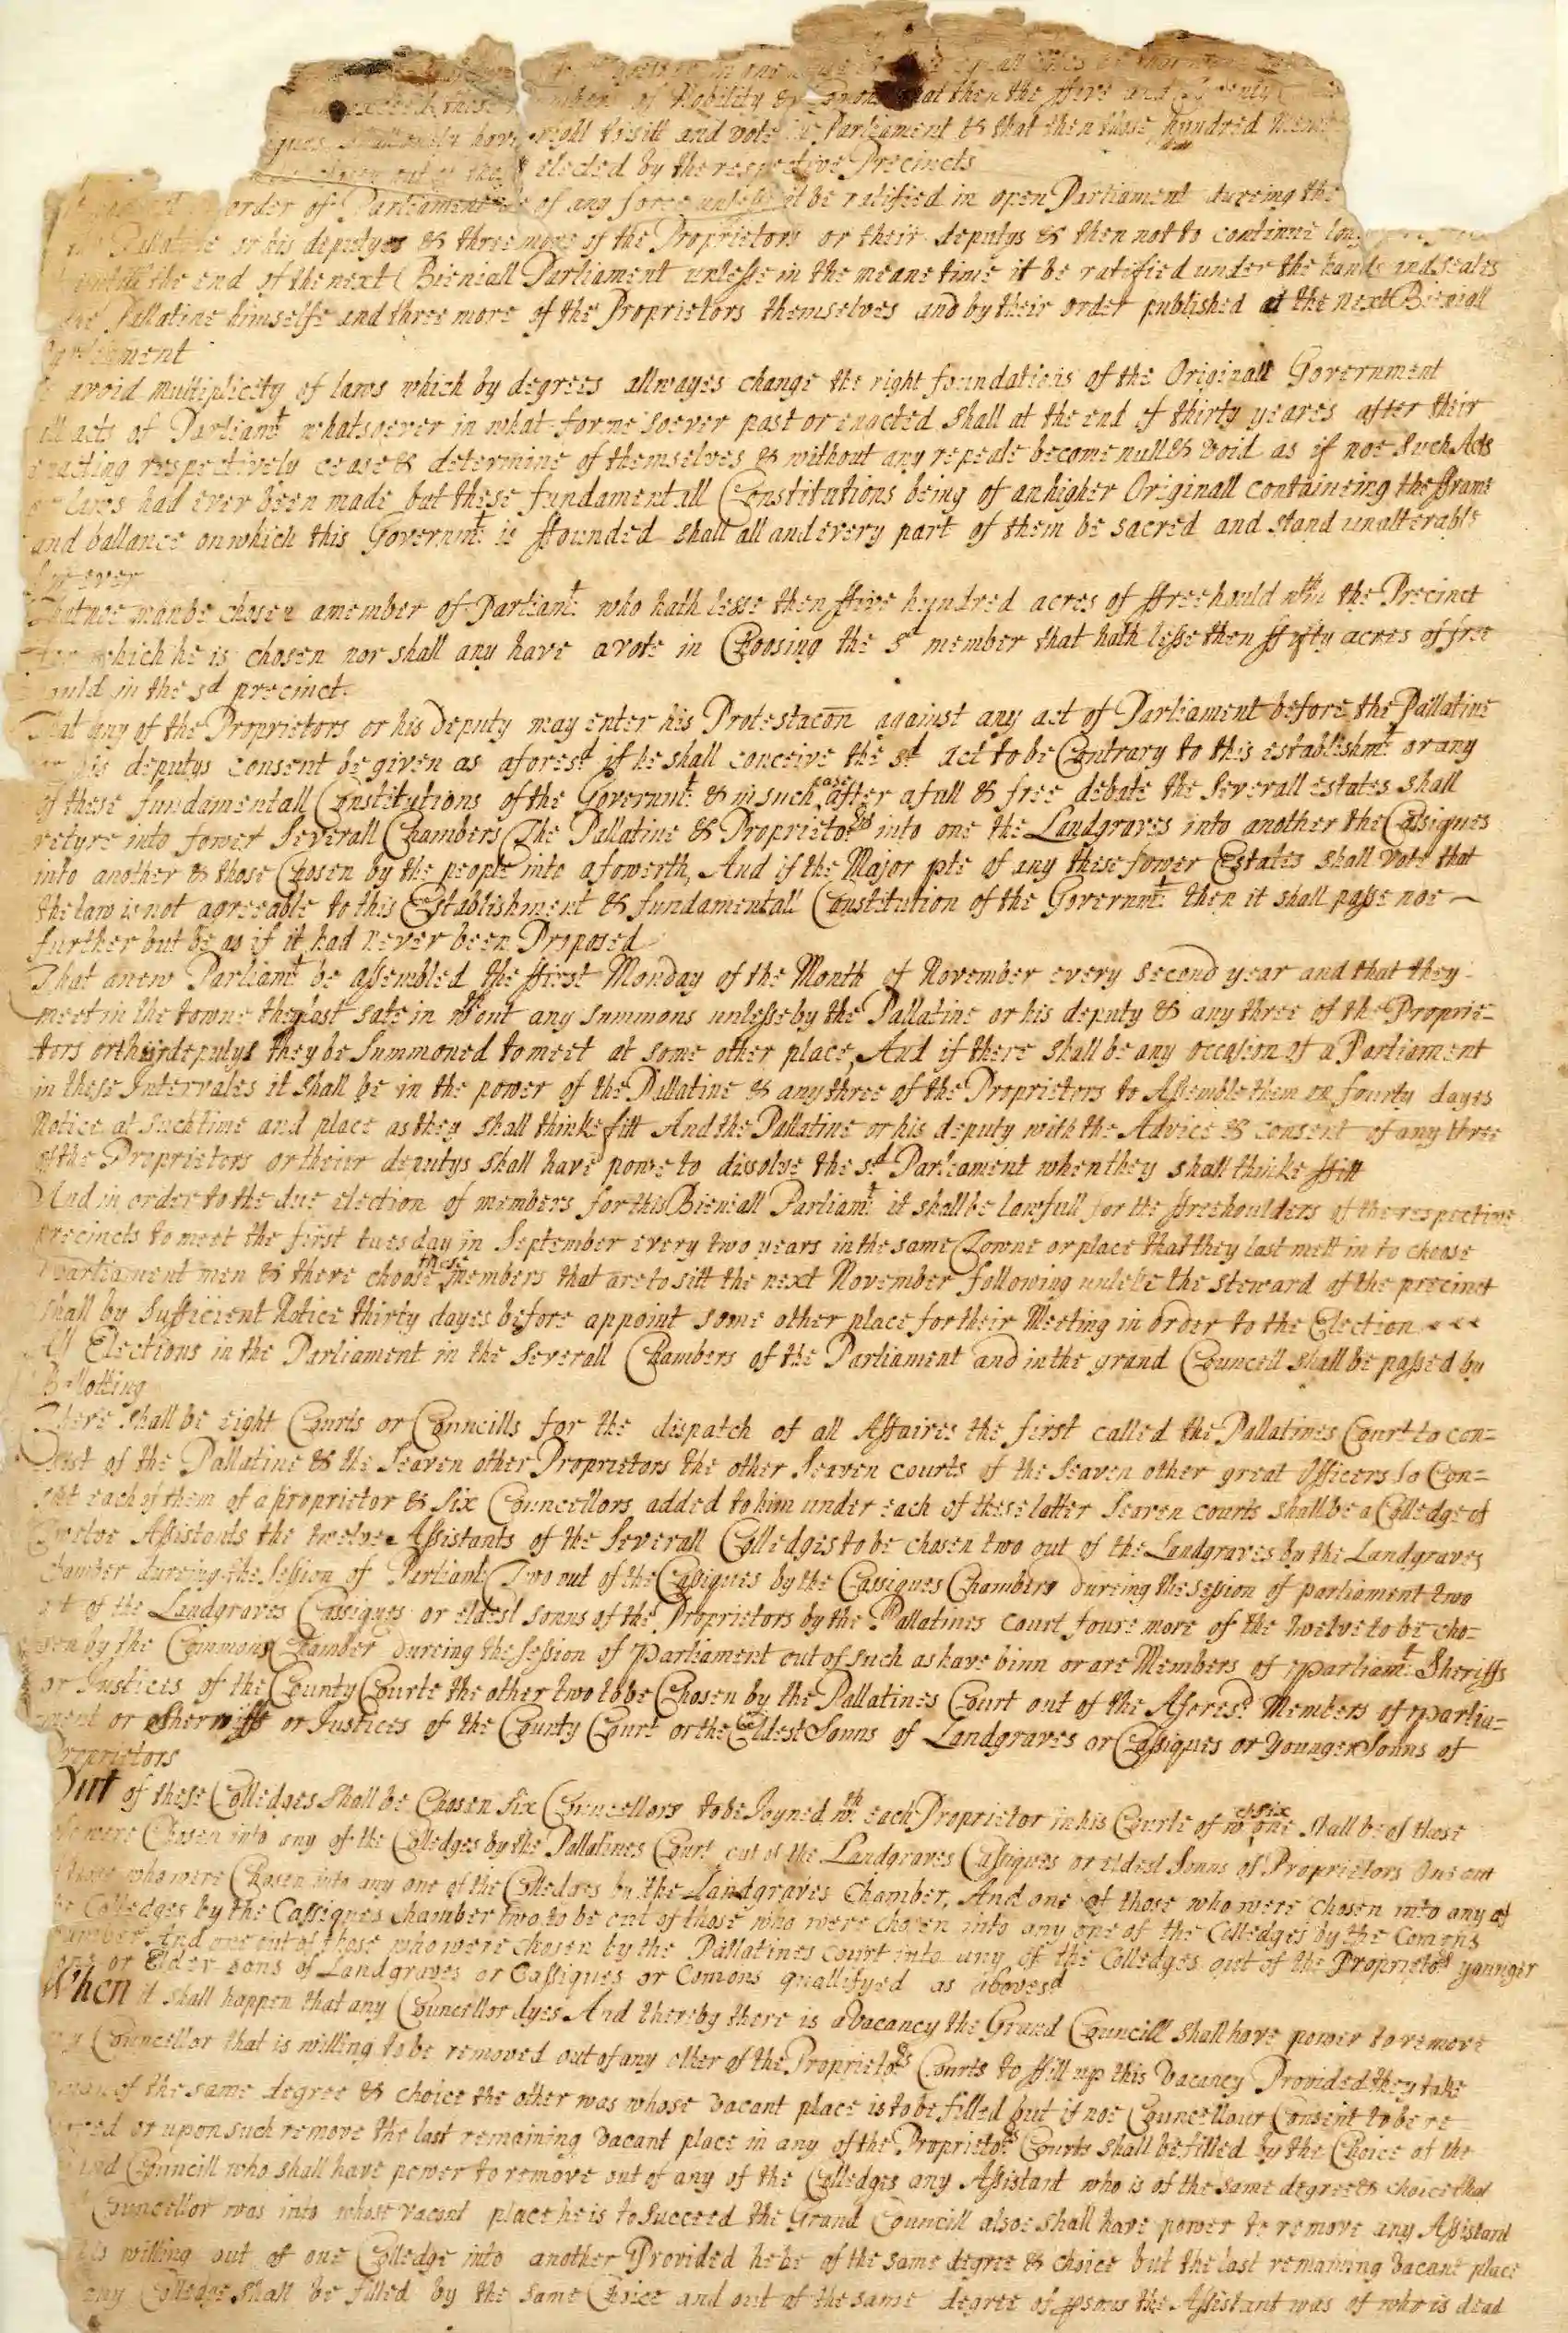 of Nobility & that then the ffive and
have right to sitt and vote in Parliament & that then those hundred
elected by the respective Precincts
order of Parliament be of any force unlesse it be ratified in open Parliament dureing the
Pallatine or his deputyes & three more of the Proprietors or their deputys & then not to continue
untill the end of the next Bieniall Parliament unlesse in the meane time it be ratified under the hands and seales
the Pallatine himselfe and three more of the Proprietors themselves and by their order published at the next Bieniall
Parliament
avoid multiplicity of laws which by degrees allwayes change the right foundations of the Originall Government
all acts of Parliamt whatsoever in what forme soever past or enacted shall at the end of thirty yeares after their
enacting respectively cease & determine of themselves & without any repeale become null & void as if noe such Acts
or laws had ever been made but these fundamentall Constitutions being of an higher Originall containeing the fframe
and ballance on which this Governmt is ffounded shall all and every part of them be sacred and stand unalterable
for ever
That noe man be chosen a member of Parliamt who hath lesse then ffive hundred acres of ffreehould wthin the Precinct
for which he is chosen nor shall any have a vote in Choosing the sd member that hath lesse then ffifty acres of free
hould in the sd precinct
That any of the Proprietors or his deputy may enter his Protestacon against any act of Parliament before the Pallatine
or his deputys consent be given as aforesd if he shall conceive the sd act to be Contrary to this establishmt or any
of these fundamentall Constitutions of the Governmt & in such case after a full & free debate the severall estates shall
retyre into fower severall Chambers The Pallatine & Proprietors into one the Landgraves into another the Cassiques
into another & those Chosen by the people into a fowerth, And if the Major pte of any these fower Estates shall vote that
the law is not agreeable to this Establishment & fundamentall Constitution of the Governmt then it shall passe noe
further but be as if it had never been Proposed
That a new Parliamt be assembled the ffirst Monday of the Month of November every second year and that they
meet in the towne they last sate in wthout any summons unlesse by the Pallatine or his deputy & any three of the Proprie=
tors or their deputys they be summoned to meet at some other place, And if there shall be any occasion of a Parliament
in these Intervales it shall be in the power of the Pallatine & any three of the Proprietors to Assemble them on fourty dayes
Notice at such time and place as they shall thinke fitt And the Pallatine or his deputy with the Advice & consent of any three
of the Proprietors or their deputys shall have powe to dissolve the sd Parliament when they shall thinke ffitt
And in order to the due election of members for this Bieniall Parliamt it shall be lawfull for the ffreehoulders of the respective
precincts to meet the first tuesday in September every two years in the same Towne or place that they last mett in to choose
Parliament men & there choose those members that are to sitt the next November following unlesse the steward of the precinct
shall by sufficient Notice thirty dayes before appoint some other place for their Meeting in order to the Election
All Elections in the Parliament in the severall Chambers of the Parliament and in the grand Councell shall be passed by
Ballotting
There shall be eight Courts or Councills for the dispatch of all Affaires the first called the Pallatines Court to con=
sist of the Pallatine & the seaven other Proprietors the other seaven courts of the seaven other great Officers to Con=
sist each of them of a proprietor & six Councellors added to him under each of these latter seaven courts shall be a Colledge of
Twelve Assistants the twelve Assistants of the severall Colledges to be chosen two out of the Landgraves by the Landgraves
Chamber dureing the session of Parliamt Two out of the Casiques by the Cassiques Chamber dureing the session of parliament two
out of the Landgraves Cassiques or eldest sonns of the Proprietors by the Pallatines court foure more of the twelve to be cho=
sen by the Commons Chamber dureing the session of Parliament out of such as have binn or are Members of Parliamt Sheriffs
or Justices of the County Courte the other two to be Chosen by the Pallatines Court out of the Aforesd Members of Parlia=
ment or Sherriffs or Justices of the County Court or the Eldest Sonns of Landgraves or Cassiques or younger Sonns of
Proprietors
Out of these Colledges shall be Chosen six Councellors to be Joyned wth each Proprietor in his Courte of wch six one shall be of those
who were Chosen into any of the Colledges by the Pallatines Court out of the Landgraves Cassiques or eldest Sonns of Proprietors One out
of those who were Chosen into any one of the Colledges by the Landgraves Chamber, And one of those who were chosen into any of
the Colledges by the Cassiques chamber two to be out of those who were chosen into any one of the Colledges by the Comons
Chamber And one out of those who were chosen by the Pallatines court into any of the Colledges out of the Proprietors younger
sons or Elder sons of Landgraves or Cassiques or Comons quallifyed as abovesd
When it shall happen that any Councellor dyes And thereby there is a Vacancy the Grand Councill shall have power to remove
any Councellor that is willing to be removed out of any other of the Proprietors Courts to ffill up this Vacancy Provided they take
a man of the same degree & choice the other was whose vacant place is to be filled but if noe Councellour Consent to be re
moved or upon such remove the last remaining vacant place in any of the Proprietors Courts shall be filled by the Choice of the
Grand Councill who shall have power to remove out of any of the Colledges any Assistant who is of the same degree & choice that
Councellor was into whose vacant place he is to succeed the Grand Councill alsoe shall have power to remove any Assistant
that is willing out of one Colledge into another Provided he be of the same degree & choice but the last remaining vacant place
in any Colledge shall be filled by the same Choice and out of the same degree of psons the Assistant was of who is dead